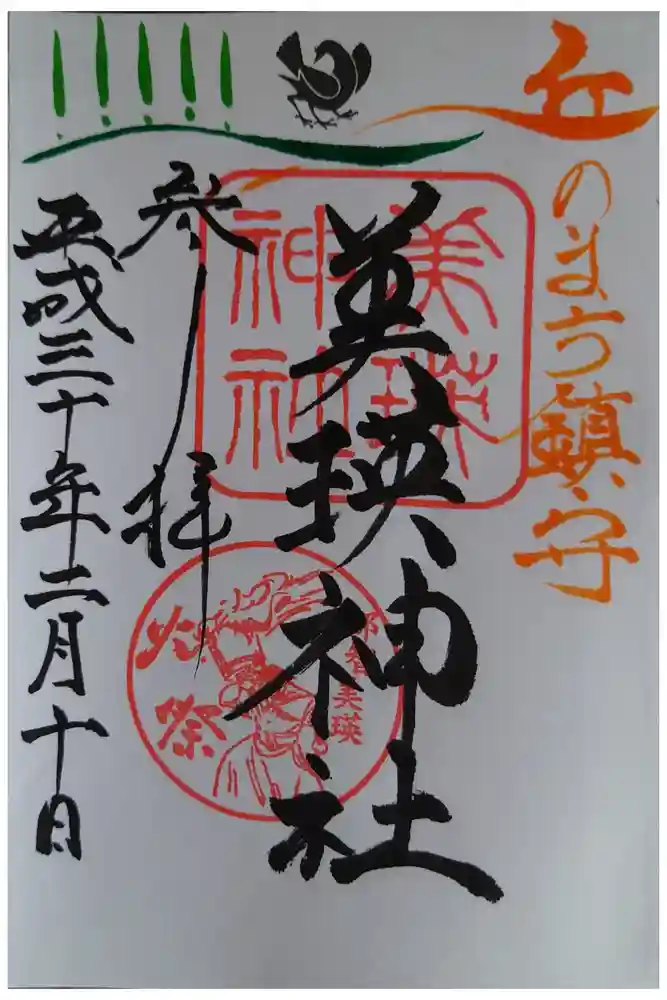 丘のまち鎮守
美瑛神社
美瑛
神社
那智美瑛
火祭
参拝
平成三十年二月十日